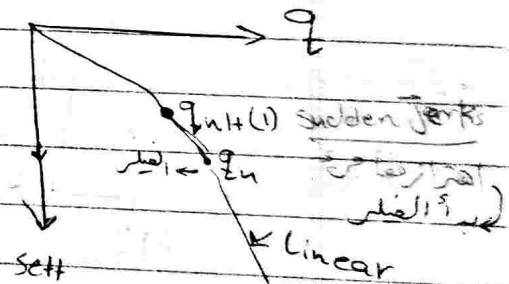 q
q ult(1) sudden Jerks
الفيلر ← qu
اهتزاز مفاجئ
أ الفيلر
Linear
sett